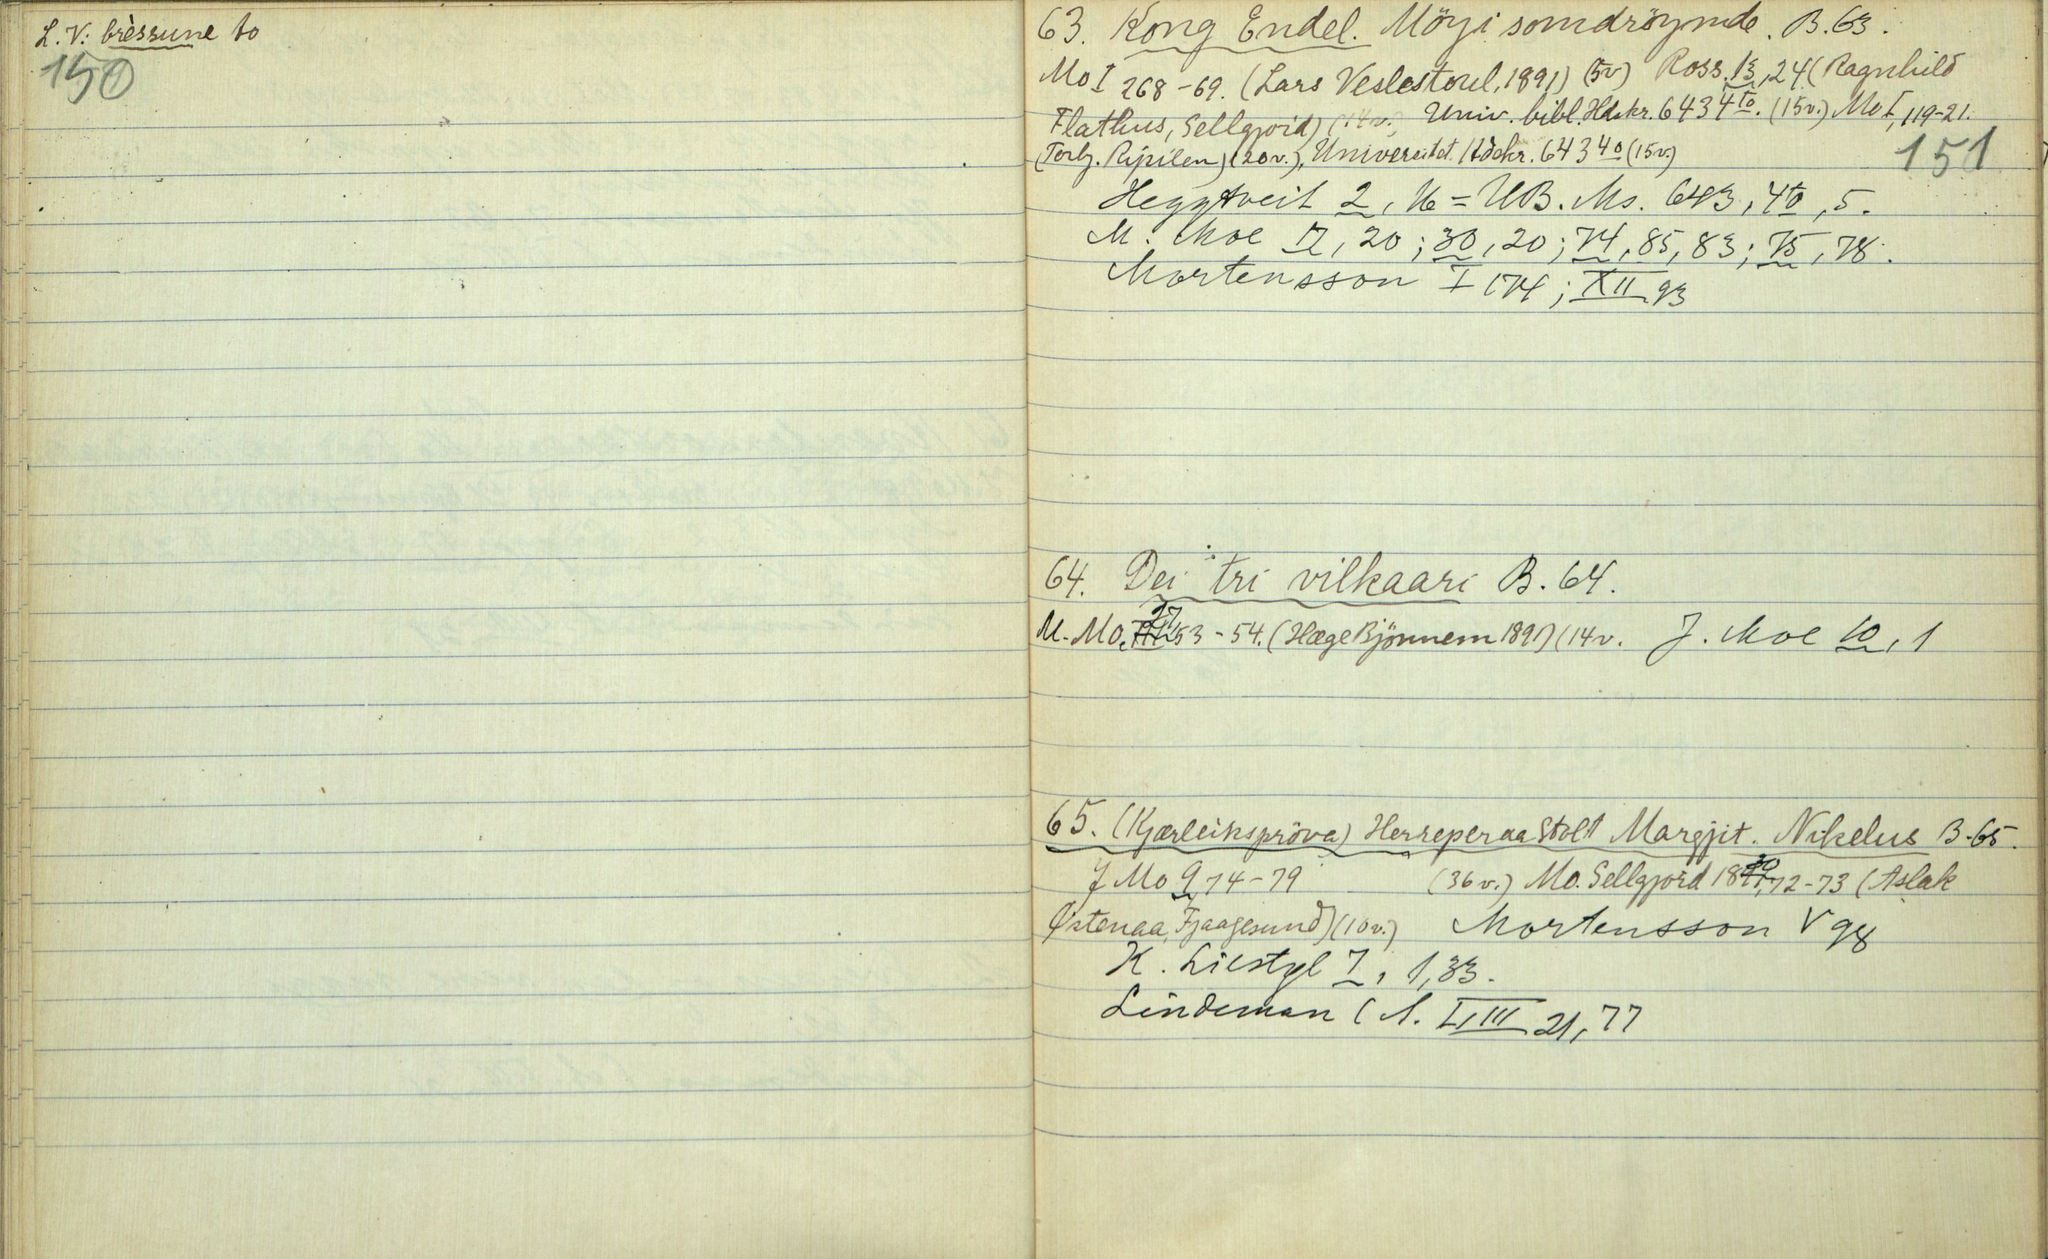 L. V: brèssune to
150
63. Kong Endel. Möyi somdröymde. B. 63.
Mo I 268-69. (Lars Veslestoul, 1891) (5v) Ross. 13, 24 (Ragnhild
Flathus, Sellgjord) (14v.), Univ. bibl. Hdskr. 643 4to. (15v.) Mo I, 119-21.
(Torbj. Ripilen) (20v.), Universitet. Hdskr. 643 4o (15v.)
151
Heggtveit 2, 16 = UB. Ms. 643, 4to, 5.
M. Moe 17, 20; 30, 20; 74, 85, 83; 75, 78.
Mortensson I 174; XII 93
64. Dei tri vilkaari B. 64.
M. Mo. 27 53-54. (Hæge Bjönnem 1891) (14v. J. Moe 10, 1
65. (Kjærleikspröva) Herreper aa Stolt Margjit. Nikelus B. 65.
J Mo 9, 74-79 (36v.) Mo. Sellgjord 1890, 72-73 (Aslak
Østenaa, Fjaagesund) (10v.) Mortensson V 98
K. Liestøl 7, 1, 33.
Lindeman (A. I, III 21, 77